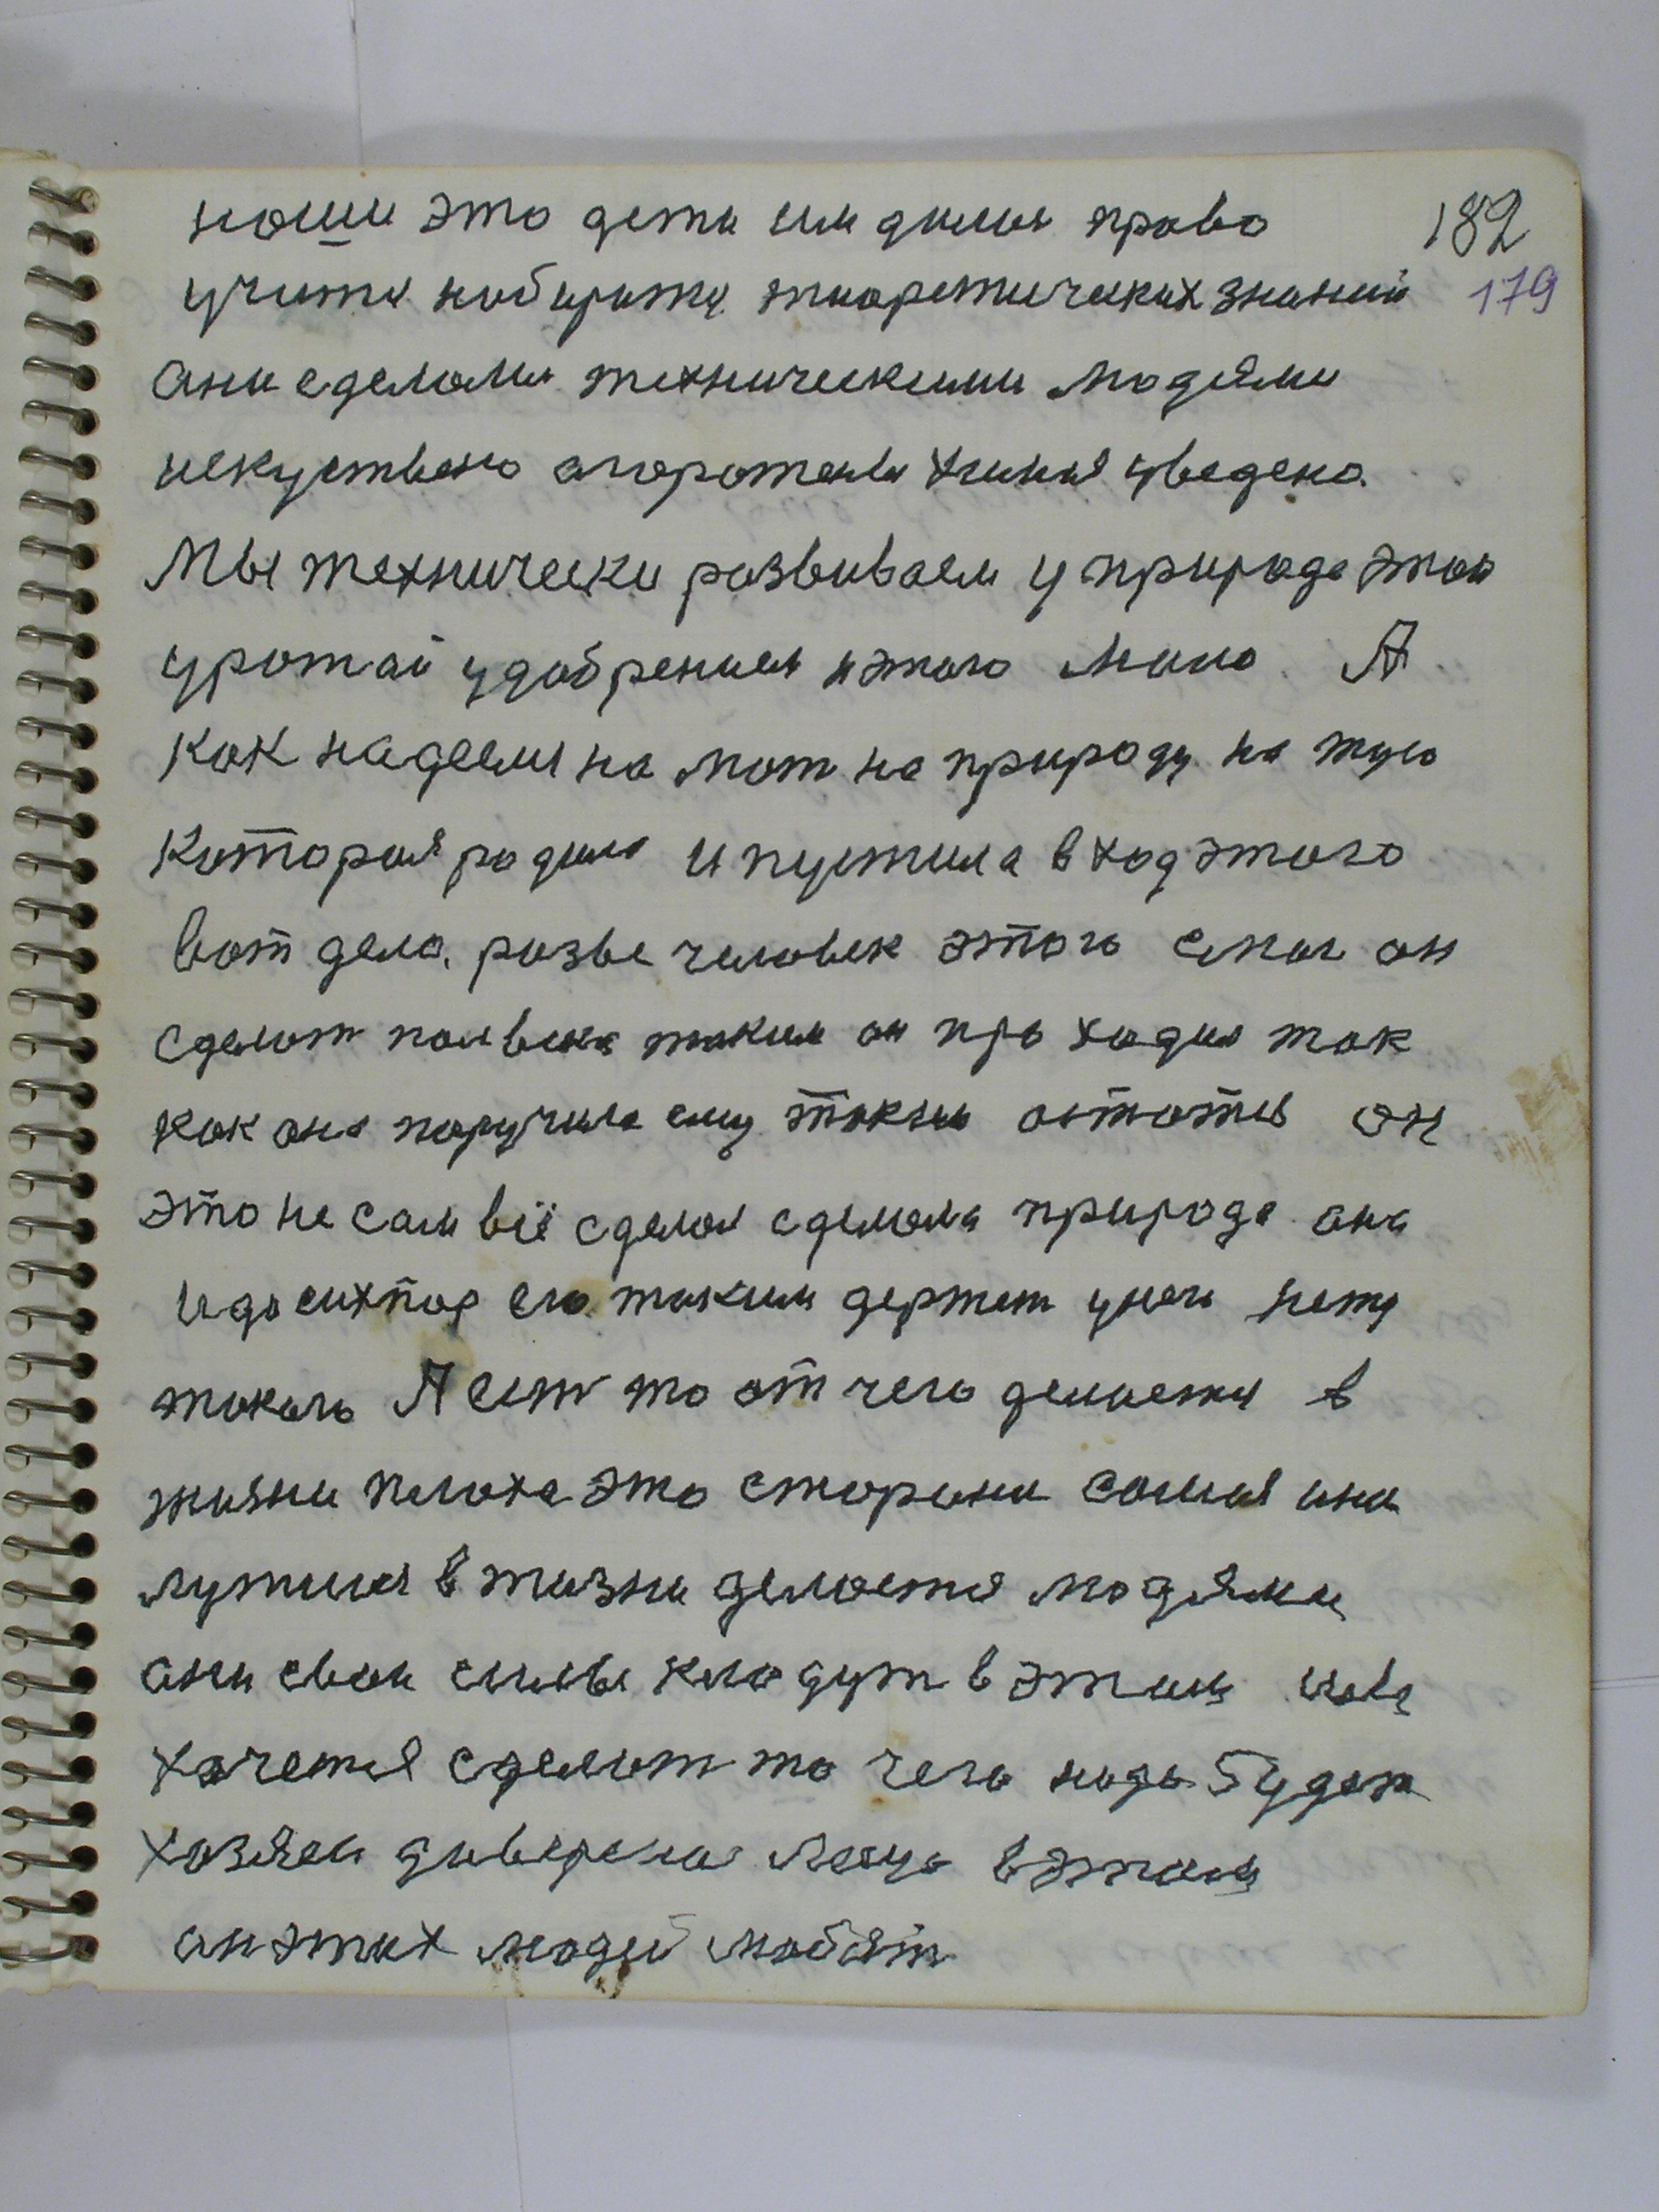 наши это дети им дили право 182
учится набирится тиоретических знаний 179
они сделали техническими людями
искуствено огорожени химия уведено.
Мы технически развиваем у природе этои
урожаи удобрением и этого мало. А
как надеемся на мат на природу на тую
которая радила и пустила в ход этого
вот дела, разве человек этого смог он
сделать пользы таким он про хадил так
как она поручила ему таким астатся он
это не сам всё сделал сделала природа она
и до сихпор его таким держит у него нету
такого А есть то от чего делается в
жизни плоха это сторона самая она
лутшая в жизни делается людями
они свои силы кладут в этому им
хочется сделать то чего надо будет
хазяен даверена лецо в этому
он этих людей любять